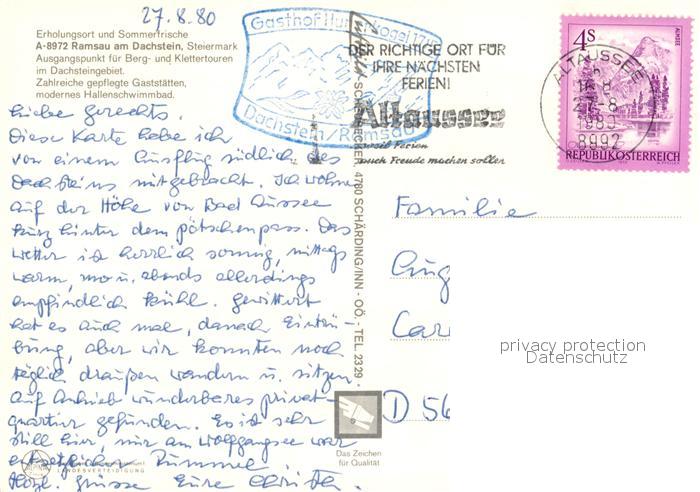 27.8.80
Erholungsort und Sommerfrische
A-8972 Ramsau am Dachstein, Steiermark
Ausgangspunkt für Berg- und Klettertouren
im Dachsteingebiet.
Zahlreiche gepflegte Gaststätten,
modernes Hallenschwimmbad.
Gasthof Hunerkogel
Dachstein/Ramsau
DER RICHTIGE ORT FÜR
IHRE NÄCHSTEN
FERIEN!
Altaussee
weil Ferien
auch Freude machen sollen
4S
ALMSEE
REPUBLIK ÖSTERREICH
ALTAUSSEE
1980
8992
Liebe Gerechts.
Diese Karte habe ich
von einem Ausflug südlich des
Dachsteins mitgebracht. Ich wohne
auf der Höhe von Bad Aussee
kurz hinter dem Pötschenpass. Das
Wetter ist herrlich sonnig, mittags
warm, mo u. abends allerdings
empfindlich kühl. Gewittert
hat es auch mal, danach Eintrü-
bung, aber wir konnten noch
täglich draußen wandern u. sitzen.
Auf Anhieb wunderbares Privat-
quartier gefunden. Es ist sehr
still hier, nur am Wolfgangsee war
entsetzlicher Rummel
Herzl. Grüsse Eure
LANDESVERTEIDIGUNG
SCHECKER, 4780 SCHÄRDING/INN - OÖ. - TEL. 2329
Das Zeichen
für Qualität
Familie
Aug
Car
D 56
privacy protection
Datenschutz